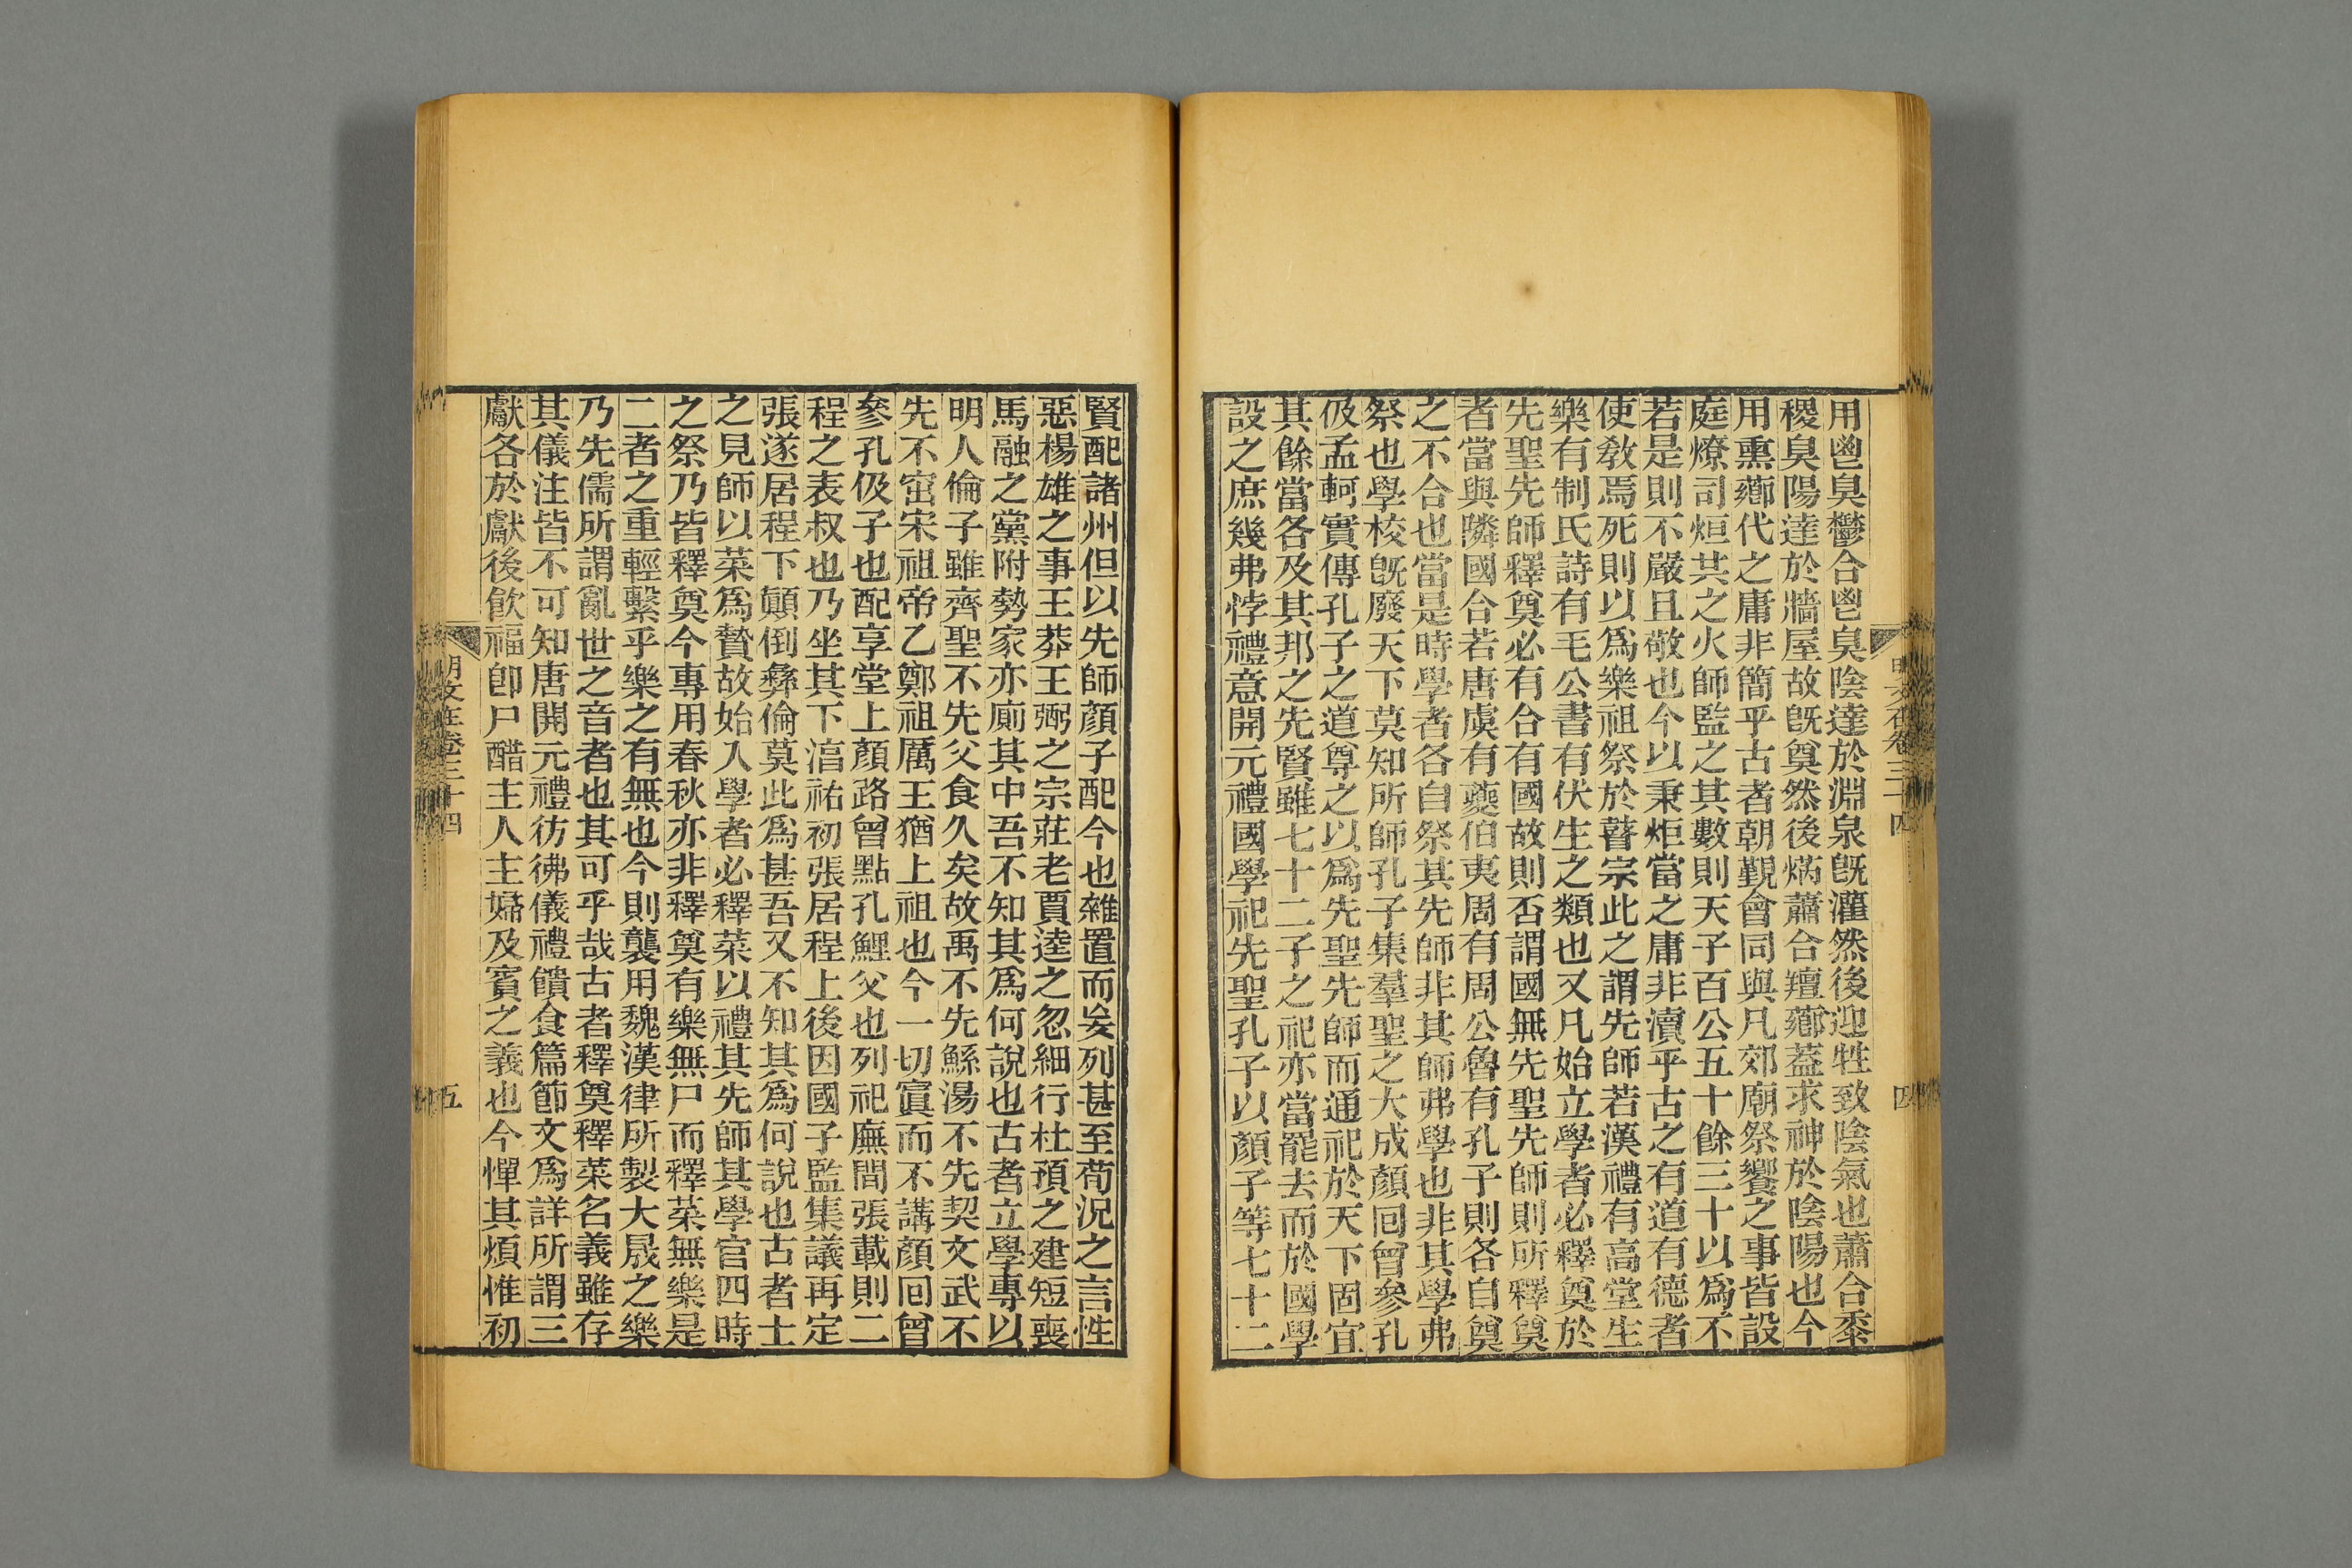 用鬯臭鬱合鬯臭陰達於淵泉旣灌然後迎牲致陰氣也蕭合黍
稷臭陽達於牆屋故旣奠然後焫蕭合羶薌葢求神於陰陽也今
用熏薌代之庸非簡乎古者朝覲會同與凡郊廟祭饗之事皆設
庭燎司烜共之火師監之其數則天子百公五十餘三十以爲不
若是則不嚴且敬也今以秉炬當之庸非瀆乎古之有道有德者
使敎焉死則以爲樂祖祭於瞽宗此之謂先師若漢禮有高堂生
樂有制氏詩有毛公書有伏生之類也又凡始立學者必釋奠於
先聖先師釋奠必有合有國故則否謂國無先聖先師則所釋奠
者當與隣國合若唐虞有夔伯夷周有周公魯有孔子則各自奠
之不合也當是時學者各自祭其先師非其師弗學也非其學弗
祭也學校旣廢天下莫知所師孔子集羣聖之大成顏囘曾參孔
伋孟軻實傳孔子之道尊之以爲先聖先師而通祀於天下固宜
其餘當各及其邦之先賢雖七十二子之祀亦當罷去而於國學
設之庶幾弗悖禮意開元禮國學祀先聖孔子以顏子等七十二
四
賢配諸州但以先師顏子配今也雜置而妄列甚至荀況之言性
惡楊雄之事王莽王弼之宗莊老賈逵之忽細行杜預之建短喪
馬融之黨附勢家亦廁其中吾不知其爲何說也古者立學專以
明人倫子雖齊聖不先父食久矣故禹不先鯀湯不先契文武不
先不窋宋祖帝乙鄭祖厲王猶上祖也今一切寘而不講顏囘曾
參孔伋子也配享堂上顏路曾點孔鯉父也列祀廡間張載則二
程之表叔也乃坐其下湻祐初張居程上後因國子監集議再定
張遂居程下顚倒彝倫莫此爲甚吾又不知其爲何說也古者士
之見師以菜爲贄故始入學者必釋菜以禮其先師其學官四時
之祭乃皆釋奠今專用春秋亦非釋奠有樂無尸而釋菜無樂是
二者之重輕繫乎樂之有無也今則襲用魏漢律所製大晟之樂
乃先儒所謂亂世之音者也其可乎哉古者釋奠釋菜名義雖存
其儀注皆不可知唐開元禮彷彿儀禮饋食篇節文爲詳所謂三
獻各於獻後飮福卽尸醋主人主婦及賓之義也今憚其煩惟初
明文在卷三十四
五